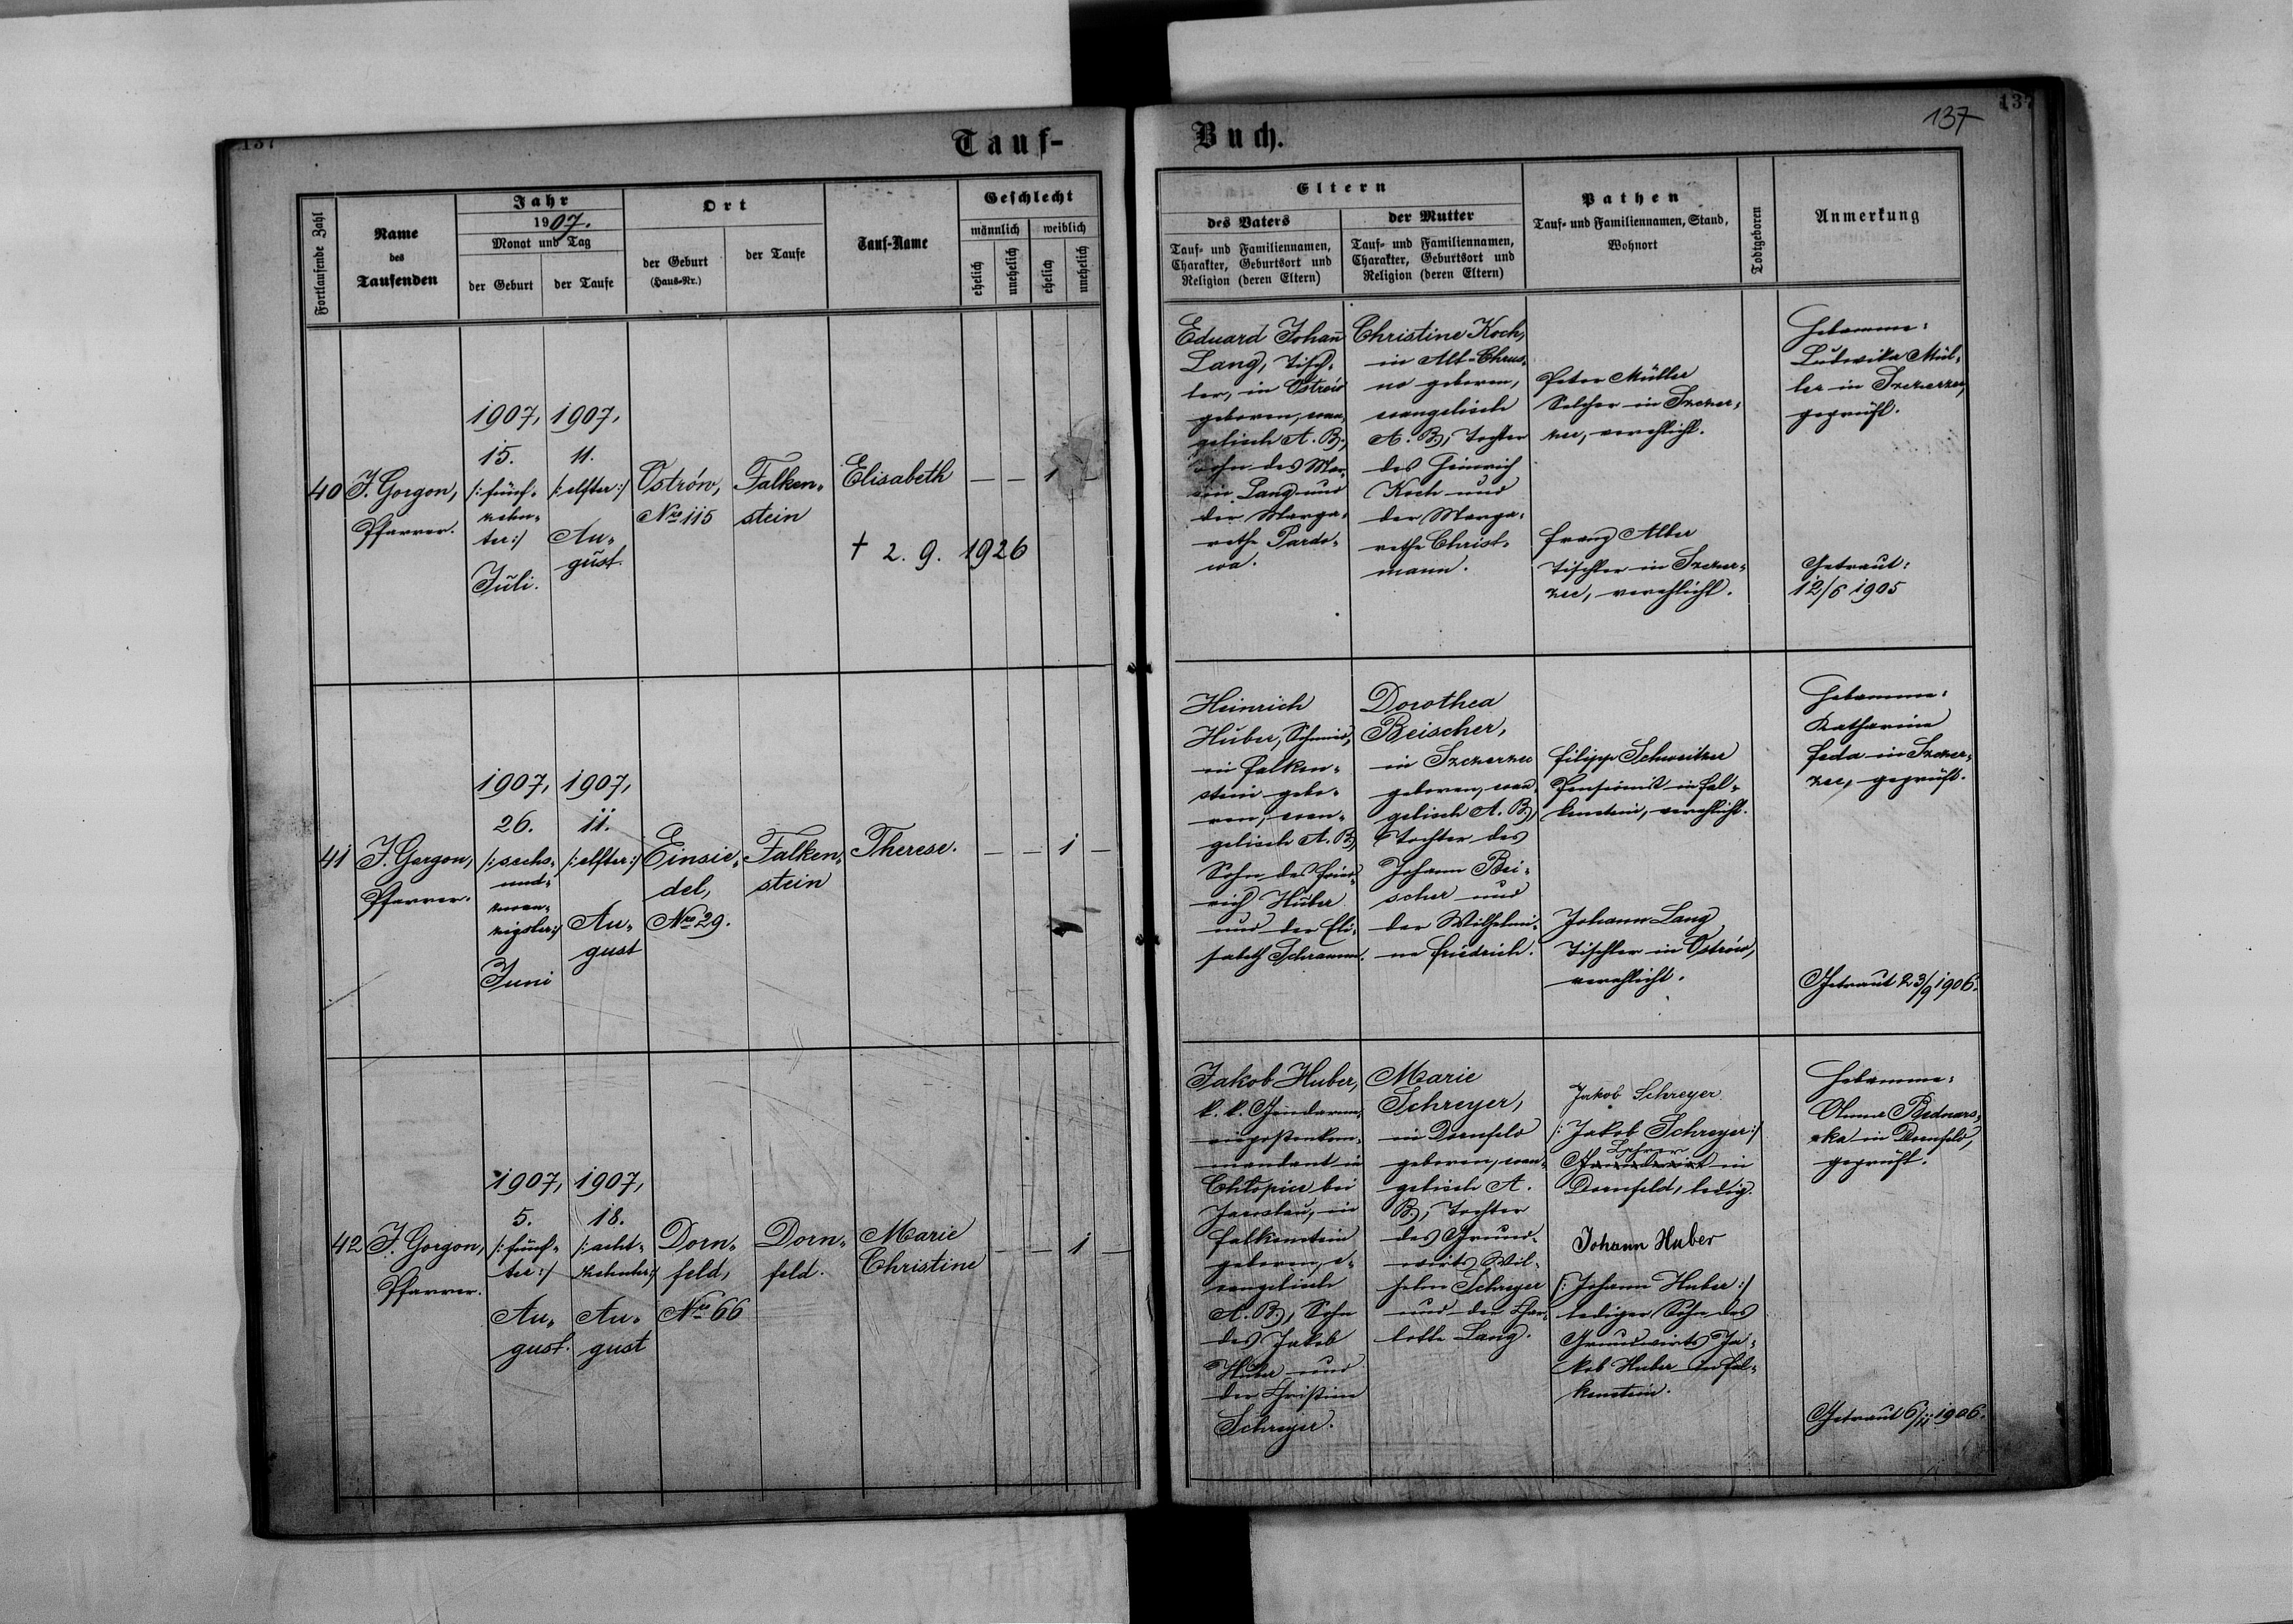 137
Tauf-
Fortlaufende Zahl
Name
des
Taufenden
Jahr
1907.
Monat und Tag
der Geburt
der Taufe
Ort
der Geburt
(Haus-Nr.)
der Taufe
Tauf-Name
Geschlecht
männlich
weiblich
ehelich
unehelich
ehelich
unehelich
40
J. Gorgon,
Pfarrer.
1907,
15.
/: fünf-
zehn-
ter :/
Juli.
1907,
11.
/: elfter :/
Au-
gust.
Ostrów,
Nro 115
Falken-
stein
Elisabeth
† 2. 9. 1926
— — 1 —
41
J. Gorgon,
Pfarrer.
1907,
26.
/: sechs-
und-
zwan-
zigster :/
Juni
1907,
11.
/: elfter :/
Au-
gust
Einsie-
del,
Nro 29.
Falken-
stein
Therese.
— — 1 —
42
J. Gorgon,
Pfarrer.
1907,
5.
/: fünf-
ter :/
Au-
gust.
1907,
18.
/: acht-
zehnter :/
Au-
gust
Dorn-
feld,
Nro 66
Dorn-
feld.
Marie
Christine
— — 1 —
Buch.
137
137
Eltern
des Vaters
Tauf- und Familiennamen,
Charakter, Geburtsort und
Religion (deren Eltern)
der Mutter
Tauf- und Familiennamen,
Charakter, Geburtsort und
Religion (deren Eltern)
Pathen
Tauf- und Familiennamen, Stand,
Wohnort
Todtgeboren
Anmerkung
Eduard Johann
Lang, Tisch-
ler, in Ostrów
geboren, evan-
gelisch A. B.,
Sohn des Mar-
tin Lang und
der Marga-
rethe Pardo-
wa.
Christine Koch,
in Alt-Chrus-
no geboren,
evangelisch
A. B., Tochter
des Heinrich
Koch und
der Marga-
rethe Christ-
mann.
Peter Müller
Selcher in Szczer-
zec, verehlicht.
Franz Alber
Tischler in Szczer-
zec, verehlicht.
Hebamme:
Ludwika Mül-
ler in Szczerzec,
geprüft.
Getraut:
12/6 1905
Heinrich
Huber, Schmied,
in Falken-
stein gebo-
ren, evan-
gelisch A. B.,
Sohn des Fried-
rich Huber
und der Eli-
sabeth Schramm.
Dorothea
Beischer,
in Szczerzec
geboren, evan-
gelisch A. B.,
Tochter des
Johann Bei-
scher und
der Wilhelmi-
ne Friedrich.
Filipp Schweitzer
Pensionist in Fal-
kenstein, verehlicht.
Johann Lang
Tischler in Ostrów,
verehlicht.
Hebamme:
Katharina
Feda in Szczer-
zec, geprüft.
Getraut 23/9 1906.
Jakob Huber,
k. k. Gendarme-
rieposten kom-
mandant in
Chłopice bei
Jaroslau, in
Falkenstein
geboren, e-
vangelisch
A. B., Sohn
des Jakob
Huber und
der Christine
Schreyer.
Marie
Schreyer,
in Dornfeld
geboren, evan-
gelisch A.
B., Tochter
des Grund-
wirts Wil-
helm Schreyer
und der Char-
lotte Lang.
Jakob Schreyer
/: Jakob Schreyer :/
Lehrer
in
Dornfeld, ledig.
Johann Huber
/: Johann Huber :/
lediger Sohn des
Grundwirts Ja-
kob Huber in Fal-
kenstein.
Hebamme:
Anna Bednars-
ka in Dornfeld,
geprüft.
Getraut 6/11 1906.